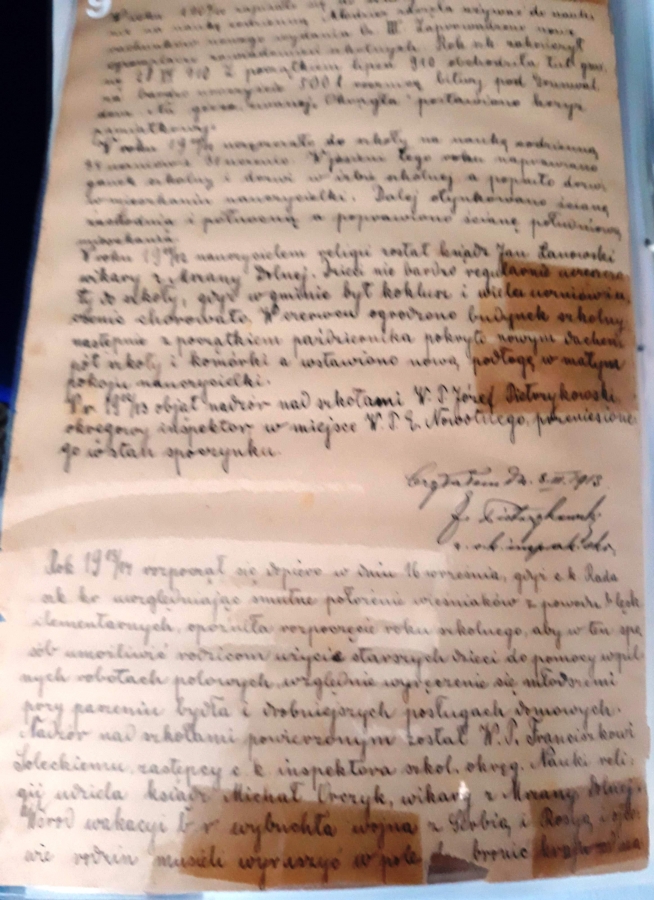 9
W roku 1909/10 zapisało się do
się na naukę codzienną. Młodzież zaczęła używać do nauki
rachunków nowego wydania cz. III. Zaprowadzono nową
zawiadomień szkolnych. Rok szk. zakończył
28 VI 910. Z początkiem lipca 910 obchodziła tut. gmi-
na bardzo uroczyście 500 l rocznicę bitwy pod Grunwal-
dem. Na górze zwanej "Okrągła" postawiono krzyż
pamiątkowy.
W roku 19 uczęszczało do szkoły na naukę codzienną
uczniów i uczenic. W jesieni tego roku naprawiono
ganek szkolny i drzwi w izbie szkolnej a popsuto drzwi
w mieszkaniu nauczycielki. Dalej otynkowano ścianę
zachodnią i północną a poprawiono ścianę południową
mieszkania.
W roku 1911/12 nauczycielem religii został ksiądz Jan Łanowski
wikary z Mszany Dolnej. Dzieci nie bardzo regularnie uczęszcza-
ły do szkoły, gdyż w gminie był koklusz i wiele uczniów i u-
czenic chorowało. W czerwcu ogrodzono budynek szkolny
następnie z początkiem października pokryto nowym dachem
pół szkoły i komórki a wstawiono nową podłogę w małym
pokoju nauczycielki.
W r. 1912/13 objął nadzór nad szkołami W. P. Józef
okręgowy inspektor w miejsce W. P. E. Nowotnego, przeniesione-
go w stan spoczynku.
Czytałem dn. 8. III. 1913.
J.
c. k. inspek. okr.
Rok 1913/14 rozpoczął się dopiero w dniu 16 września, gdyż c. k. Rada
szk. kr. uwzględniając smutne położenie wieśniaków z powodu klęsk
elementarnych, opóźniła rozpoczęcie roku szkolnego, aby w ten spo-
sób umożliwić rodzicom użycie starszych dzieci do pomocy w pil-
nych robotach polowych, względnie wyręczenie się młodszemi
przy pasieniu bydła i drobniejszych posługach domowych.
Nadzór nad szkołami powierzonym został W. P. Franciszkowi
Soleckiemu, zastępcy c. k. inspektora szkol. okręg. Nauki reli-
gij udziela ksiądz Michał Orczyk, wikary z Mszany Dolnej.
Wśród wakacyi b r wybuchła wojna z Serbią i Rosyą i ojco-
wie rodzin musieli wyruszyć w pole bronić